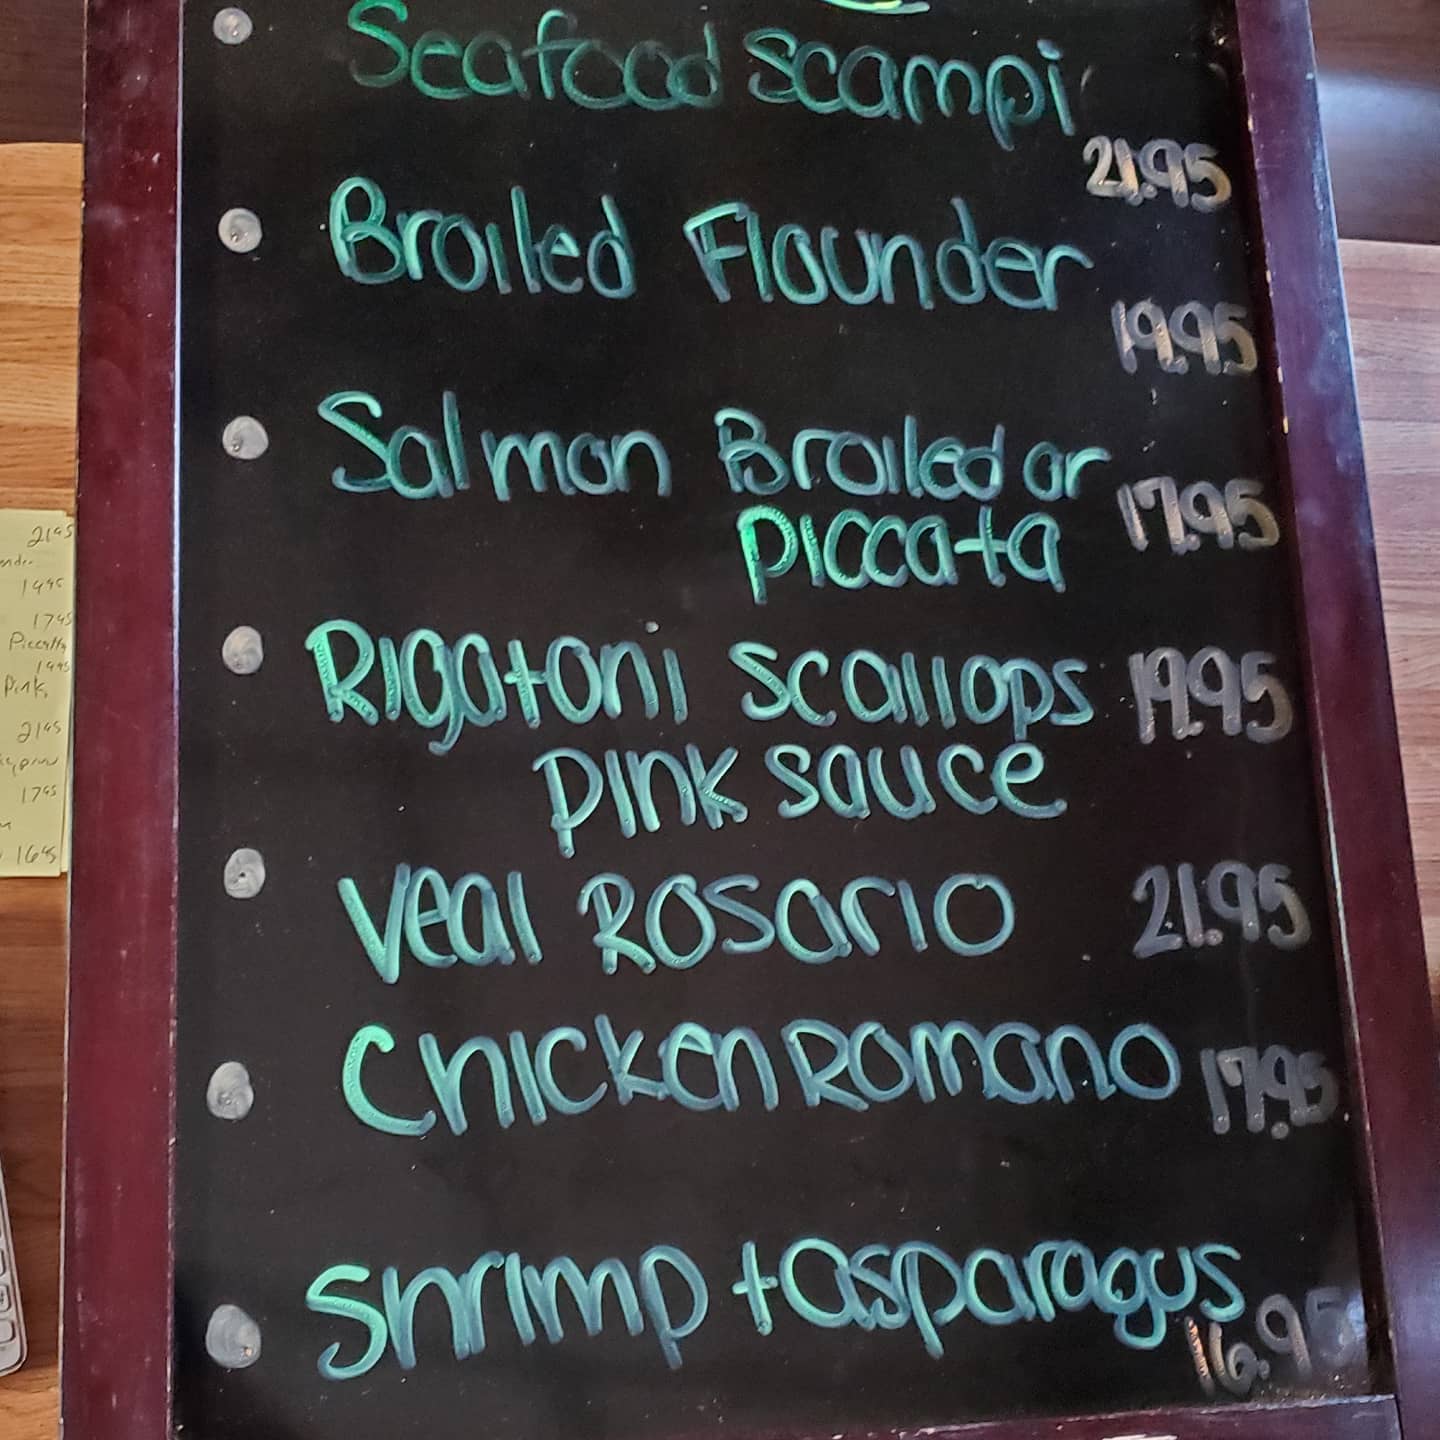 Seafood Scampi
21.95
Broiled Flounder
19.95
Salmon Broiled or
Piccata 17.95
Rigatoni Scallops 19.95
Pink Sauce
Veal Rosario 21.95
Chicken Romano 17.95
Shrimp + asparagus
16.95
2195
1995
1795
1995
Pink
2195
1795
1695